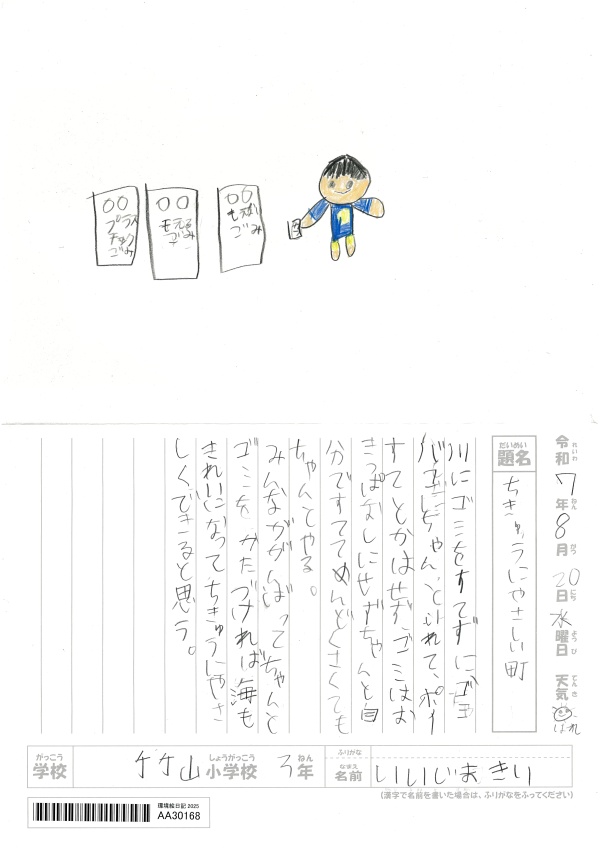 プラスチックごみ
もえるごみ
ごみ
1
令和7年8月20日水曜日 天気 はれ
れいわ ねん がつ にち ようび てんき
だいめい
題名
ちきゅうにやさしい町
川にゴミをすてずにゴミ
ばこにちゃんといれて、ポイ
すてとかはせずゴミはお
きっぱなしにせずちゃんと自
分ですててめんどくさくても
ちゃんとやる。
みんながんばってちゃんと
ゴミをかたづければ海も
きれいになってちきゅうにやさ
しくできると思う。
がっこう しょうがっこう ねん
学校 竹山小学校 3年
ふりがな
なまえ
名前 いいじまきり
(漢字で名前を書いた場合は、ふりがなをふってください)
環境絵日記 2025
AA30168